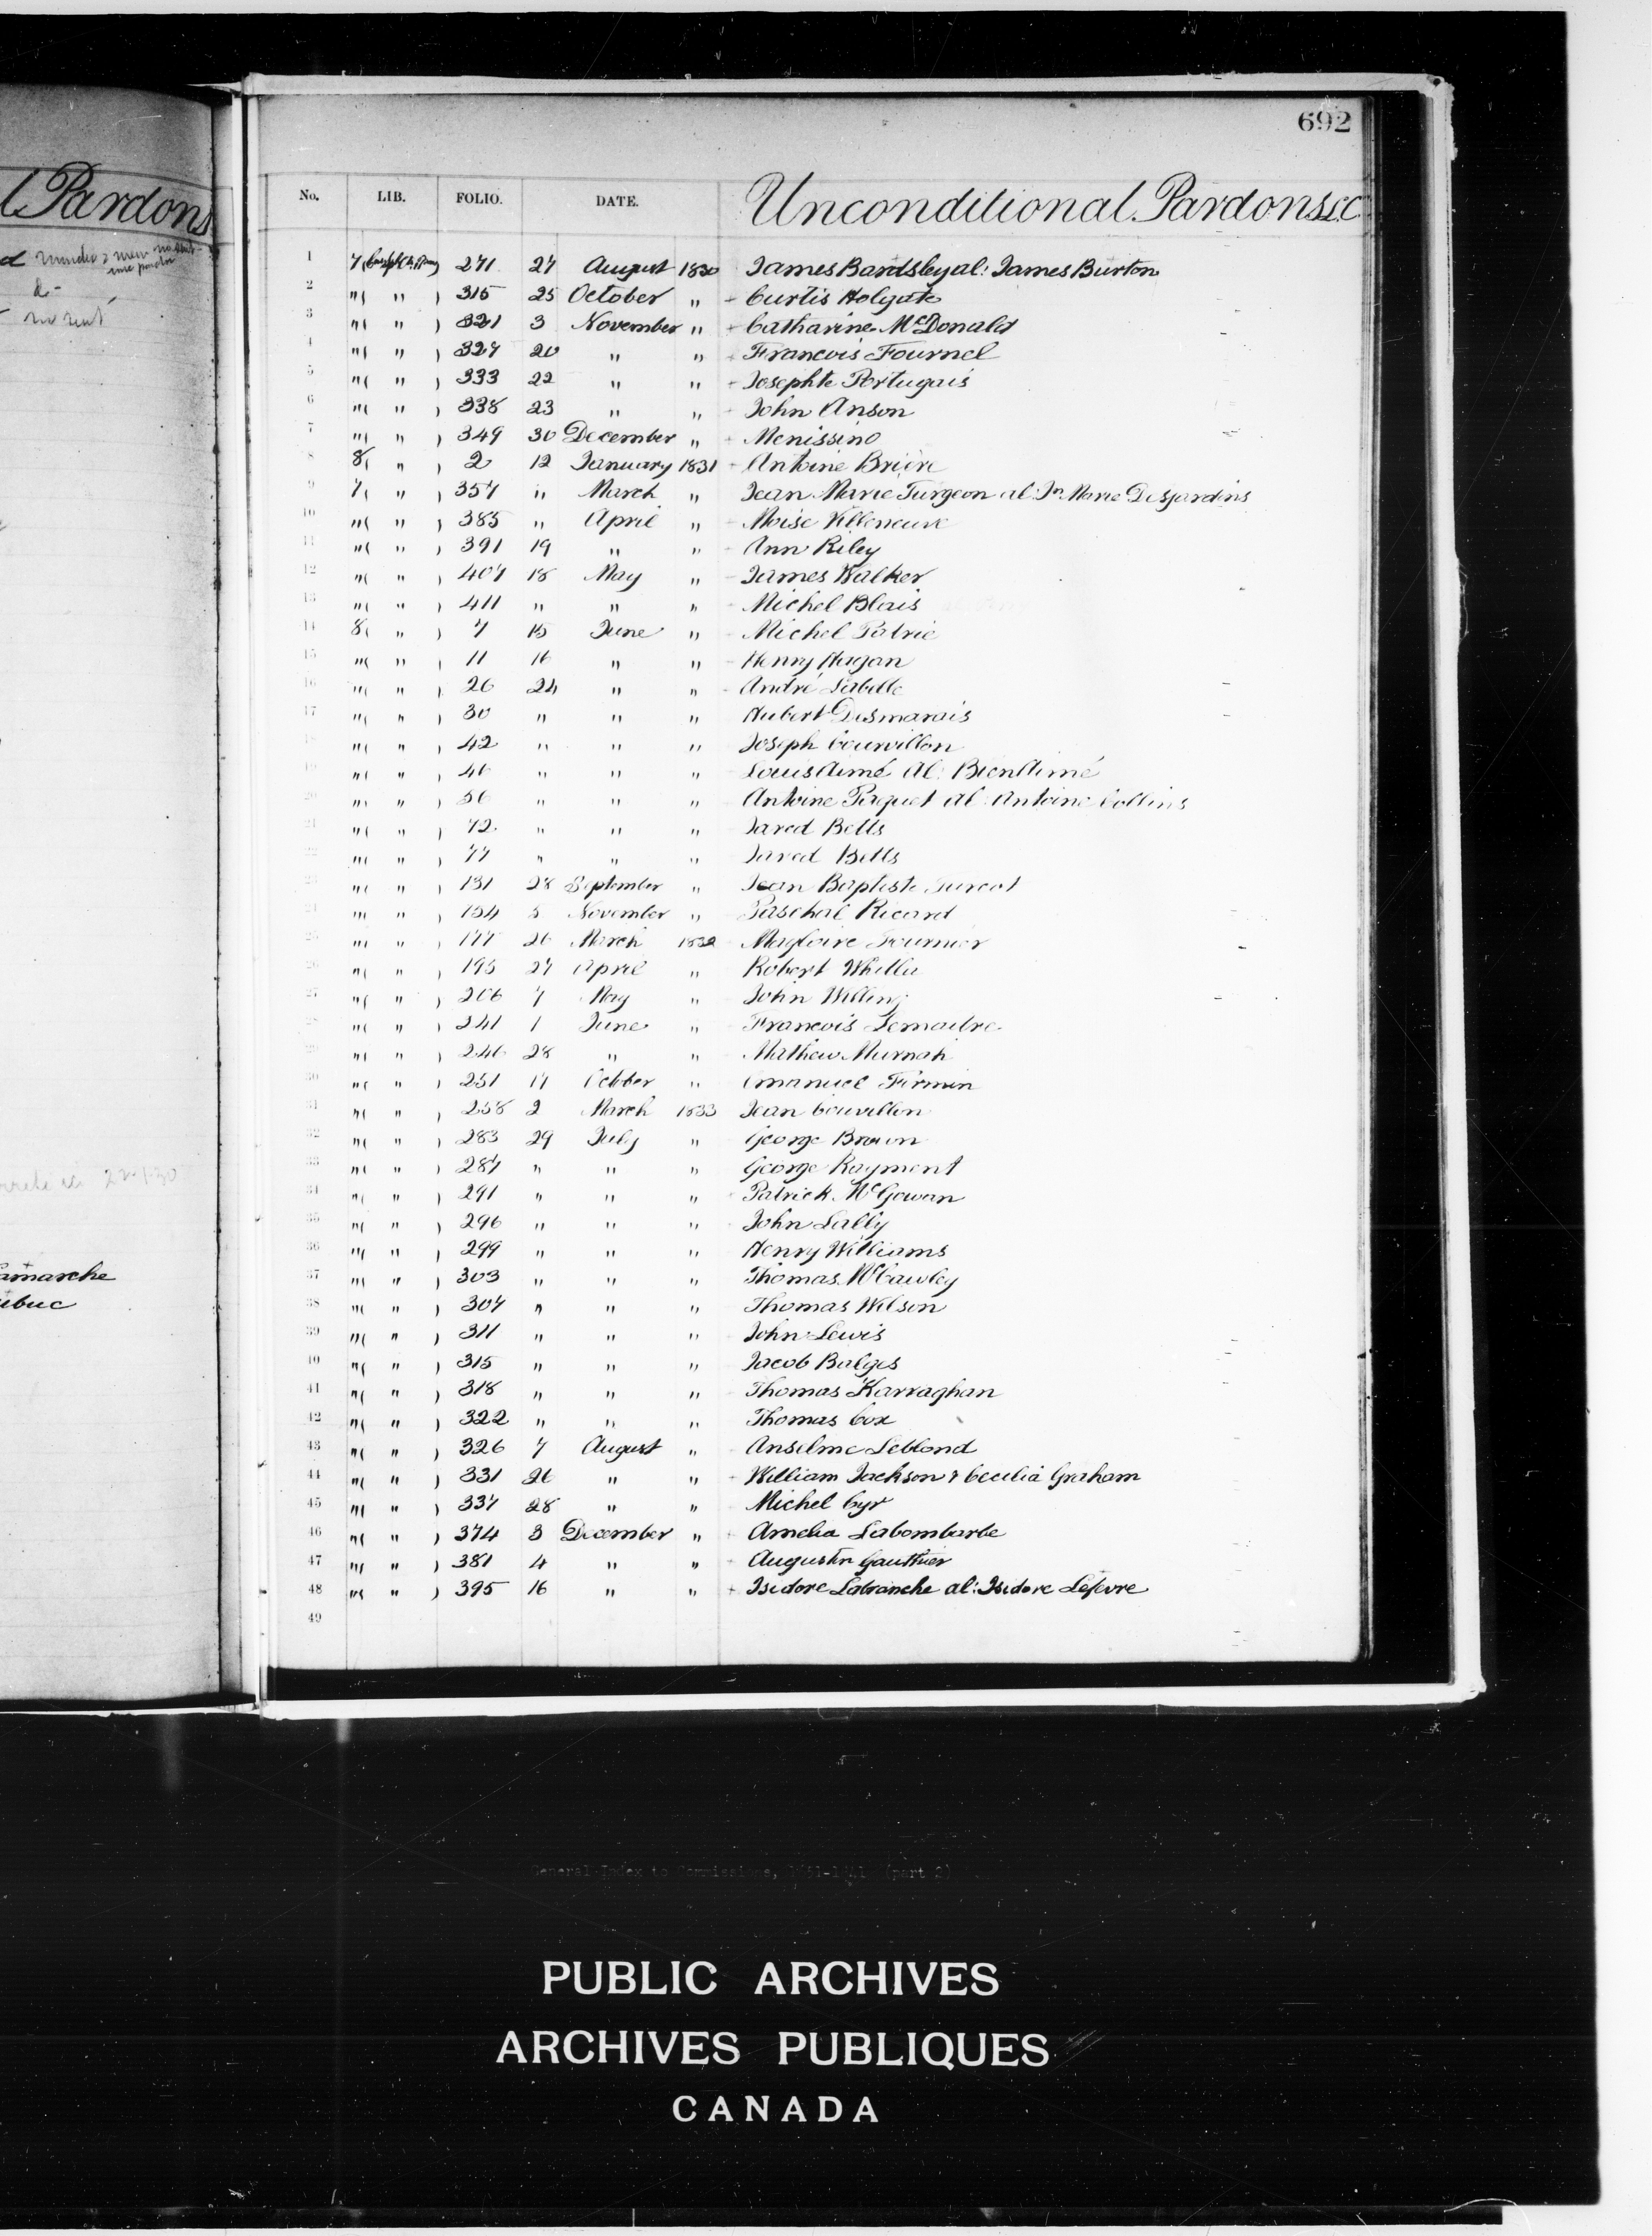 692
l Pardons
No. LIB. FOLIO. DATE. Unconditional Pardons &c
1 7 ( ) 271 27 August 1830 James Bardsley al: James Burton
2 "( " ) 315 25 October " Curtis Holgate
3 "( " ) 321 3 November " Catharine McDonald
4 "( " ) 327 20 " " Francois Fournel
5 "( " ) 333 22 " " Josephte Portugais
6 "( " ) 338 23 " " John Anson
7 "( " ) 349 30 December " Menissino
8 8( " ) 2 12 January 1831 Antoine Brière
9 7( " ) 357 " March " Jean Marie Turgeon al: Jn Marie Desjardins
10 "( " ) 385 " April " Moise Villeneuve
11 "( " ) 391 19 " " Ann Riley
12 "( " ) 407 18 May " James Walker
13 "( " ) 411 " " " Michel Blais
14 8( " ) 7 15 June " Michel Patrie
15 "( " ) 11 16 " " Henry Hagan
16 "( " ) 26 24 " " André Labelle
17 "( " ) 30 " " " Hubert Desmarais
18 "( " ) 42 " " " Joseph Couvillon
19 "( " ) 46 " " " Louis Aimé al: Bien Aimé
20 "( " ) 56 " " " Antoine Paquet al: Antoine Collins
21 "( " ) 72 " " " Jared Betts
22 "( " ) 77 " " " Jared Betts
23 "( " ) 131 28 September " Jean Baptiste Turcot
24 "( " ) 154 5 November " Paschal Ricard
25 "( " ) 177 26 March 1832 Magloire Fournier
26 "( " ) 195 27 April " Robert Whilla
27 "( " ) 206 7 May " John Willing
28 "( " ) 241 1 June " Francois Lemaitre
29 "( " ) 246 28 " " Mathew Murnah
30 "( " ) 251 17 October " Emanuel Firmin
31 "( " ) 258 2 March 1833 Jean Couvillon
32 "( " ) 283 29 July " George Brown
33 "( " ) 287 " " " George Rayment
34 "( " ) 291 " " " Patrick McGowan
35 "( " ) 296 " " " John Lally
36 "( " ) 299 " " " Henry Williams
37 "( " ) 303 " " " Thomas McCawley
38 "( " ) 307 " " " Thomas Wilson
39 "( " ) 311 " " " John Lewis
40 "( " ) 315 " " " Jacob Balges
41 "( " ) 318 " " " Thomas Karraghan
42 "( " ) 322 " " " Thomas Cox
43 "( " ) 326 7 August " Anselme Leblond
44 "( " ) 331 26 " " William Jackson & Cecilia Graham
45 "( " ) 337 28 " " Michel Cyr
46 "( " ) 374 3 December " Amelia Labombarbe
47 "( " ) 381 4 " " Augustin Gauthier
48 "( " ) 395 16 " " Isidore Labranche al: Isidore Lefevre
49
22-1-30
amarche
ubuc
General Index to Commissions, 1651-1841 (part 2)
PUBLIC ARCHIVES
ARCHIVES PUBLIQUES
CANADA